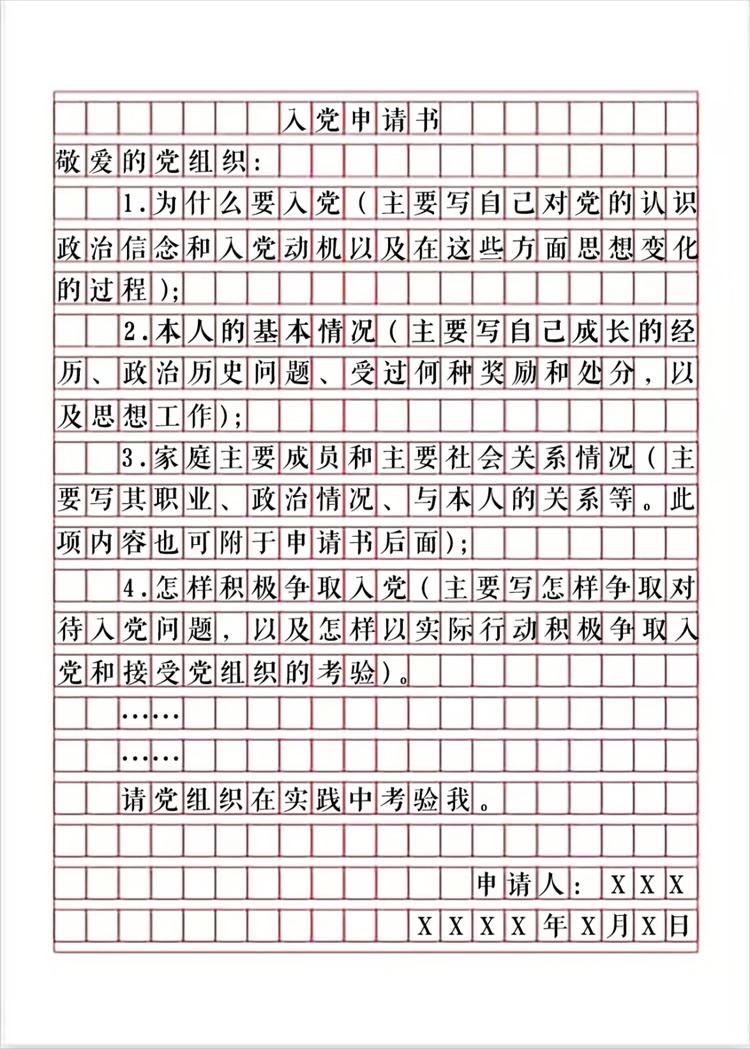 入党申请书
敬爱的党组织:
1.为什么要入党(主要写自己对党的认识
政治信念和入党动机以及在这些方面思想变化
的过程);
2.本人的基本情况(主要写自己成长的经
历、政治历史问题、受过何种奖励和处分,以
及思想工作);
3.家庭主要成员和主要社会关系情况(主
要写其职业、政治情况、与本人的关系等。此
项内容也可附于申请书后面);
4.怎样积极争取入党(主要写怎样争取对
待入党问题,以及怎样以实际行动积极争取入
党和接受党组织的考验)。
……
……
请党组织在实践中考验我。
申请人: X X X
X X X X 年 X 月 X 日